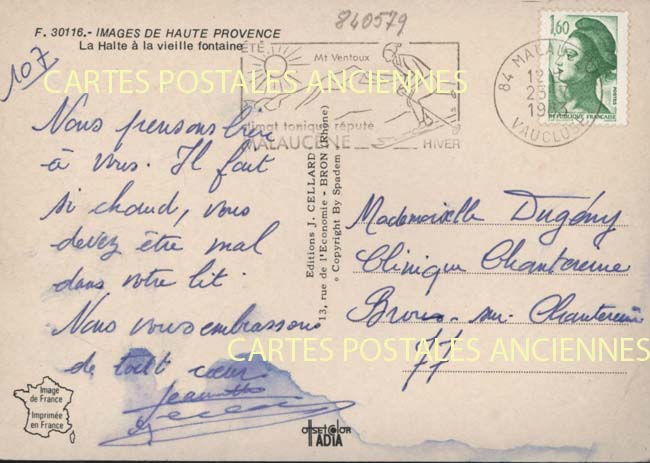 F. 30116.- IMAGES DE HAUTE PROVENCE
La Halte à la vieille fontaine
107
840579
ÉTÉ
Mt Ventoux
climat tonique réputé
MALAUCÈNE
HIVER
84 MALAUCÈNE
12 H
23
19
VAUCLUSE
1,60
POSTES
RÉPUBLIQUE FRANÇAISE
CARTES POSTALES ANCIENNES
Nous pensons bien
à vous. Il fait
si chaud, vous
devez être mal
dans votre lit.
Nous vous embrassons
de tout cœur
Jeannette
Editions J. CELLARD
13, rue de l'Economie - BRON (Rhône)
© Copyright By Spadem
Mademoiselle Dugény
Clinique Chantereine
Brou-sur-Chantereine
77
CARTES POSTALES ANCIENNES
Image
de France
Imprimée
en France
offset color
IADIA